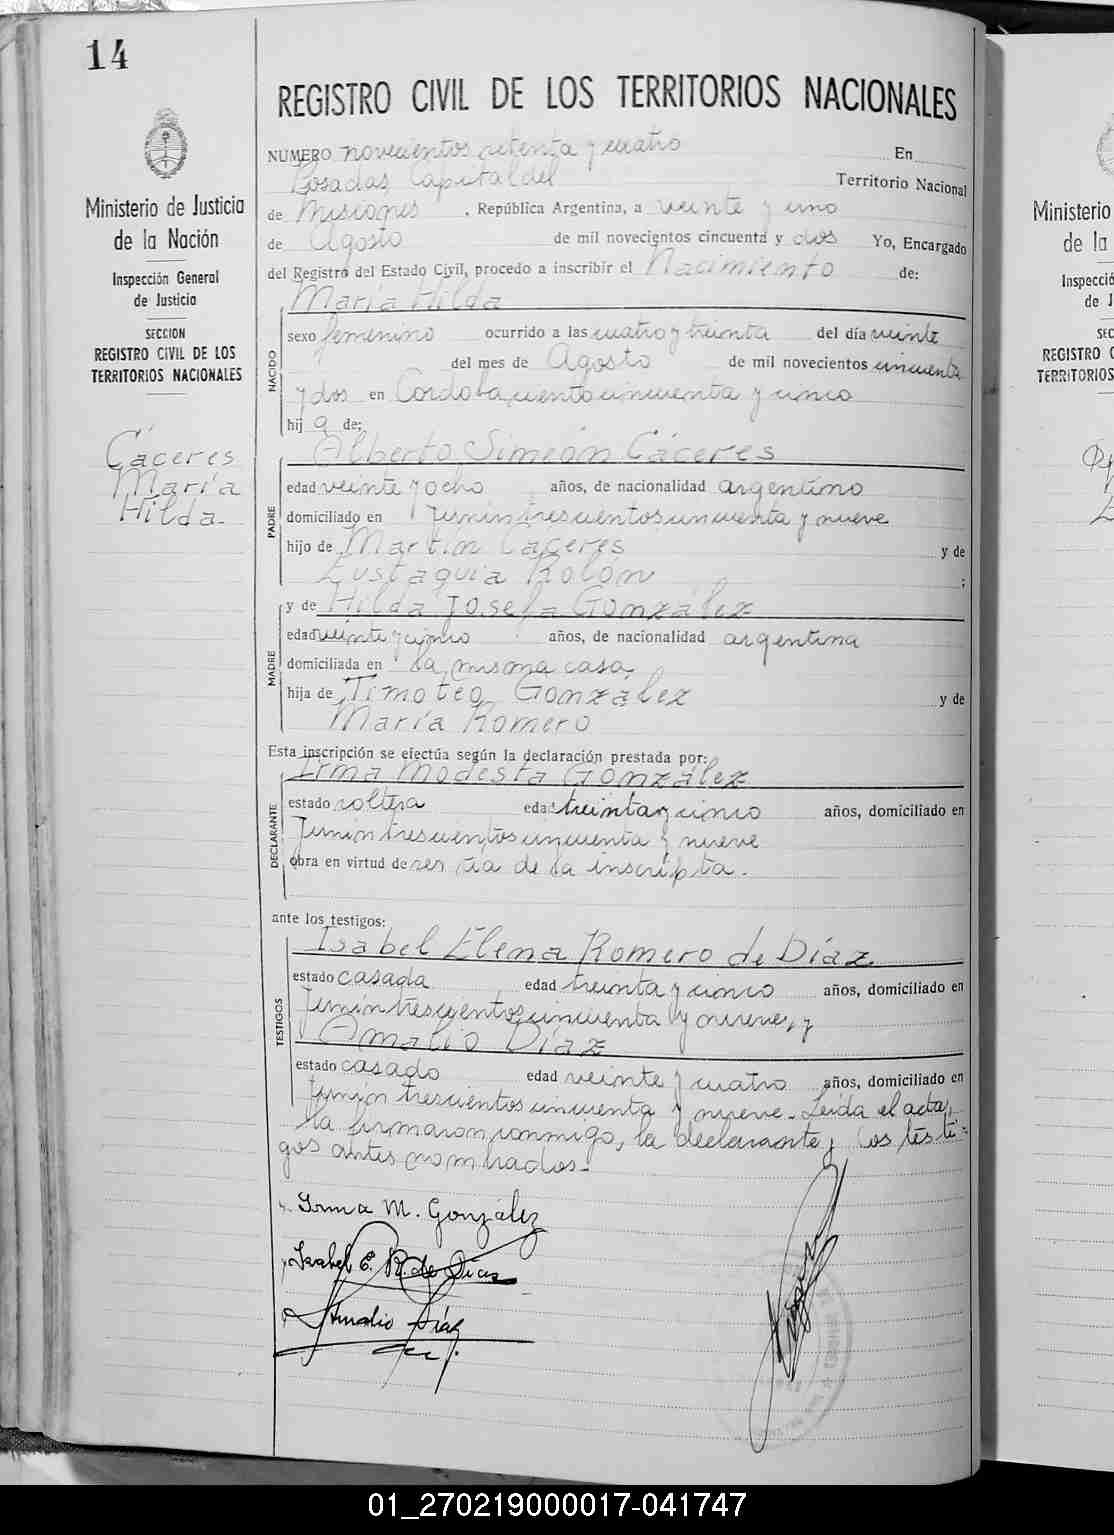 14
REGISTRO CIVIL DE LOS TERRITORIOS NACIONALES
Ministerio de Justicia
de la Nación
Inspección General
de Justicia
SECCION
REGISTRO CIVIL DE LOS
TERRITORIOS NACIONALES
Cáceres
María
Hilda.
NUMERO novecientos setenta y cuatro En
Posadas, Capital del Territorio Nacional
de Misiones, República Argentina, a veinte y uno
de Agosto de mil novecientos cincuenta y dos Yo, Encargado
del Registro del Estado Civil, procedo a inscribir el Nacimiento de:
María Hilda
NACIDO
sexo femenino ocurrido a las cuatro y treinta del día veinte
del mes de Agosto de mil novecientos cincuenta
y dos en Córdoba, ciento cincuenta y cinco
hija de:
Alberto Simeón Cáceres
PADRE
edad veinte y ocho años, de nacionalidad argentino
domiciliado en Junín trescientos cincuenta y nueve
hijo de Martín Cáceres y de
Eustaquia Rolón ;
MADRE
y de Hilda Josefa González
edad veinte y cinco años, de nacionalidad argentina
domiciliada en la misma casa,
hija de Timoteo González y de
María Romero
Esta inscripción se efectúa según la declaración prestada por:
Irma Modesta González
DECLARANTE
estado soltera edad treinta y cinco años, domiciliado en
Junín trescientos cincuenta y nueve
obra en virtud de ser tía de la inscripta.
ante los testigos:
Isabel Elena Romero de Díaz
TESTIGOS
estado casada edad treinta y cinco años, domiciliado en
Junín trescientos cincuenta y nueve, y
Amalio Díaz
estado casado edad veinte y cuatro años, domiciliado en
Junín trescientos cincuenta y nueve. Leída el acta,
la firmaron conmigo, la declarante y los testi=
gos antes nombrados.-
Irma M. González
Isabel E. R. de Díaz
Amalio Díaz
Ministerio
de la
Inspecció
de J
SEC
REGISTRO C
TERRITORIOS
01_270219000017-041747